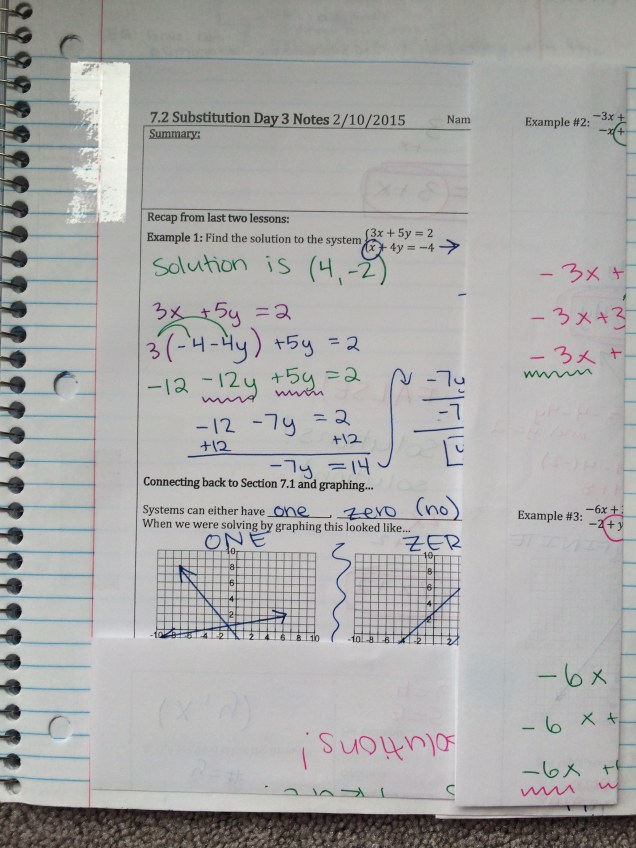 7.2 Substitution Day 3 Notes 2/10/2015 Nam
Summary:
Recap from last two lessons:
Example 1: Find the solution to the system {3x + 5y = 2
x + 4y = −4 →
Solution is (4, -2)
3x + 5y = 2
3(-4-4y) + 5y = 2
-12 -12y +5y = 2
-12 -7y = 2
+12 +12
-7y = 14
-7y
-7
Connecting back to Section 7.1 and graphing...
Systems can either have one, zero (no)
When we were solving by graphing this looked like...
ONE ZER
10
8
6
4
2
-10 -8 -6 -4 -2 2 4 6 8 10
10
8
6
4
2
-10 -8 -6 -4 -2 2
olutions!
Example #2: −3x +
−x +
-3x +
-3x+3
-3x +
Example #3: −6x +
−2 + y
-6x
-6x +
-6x +